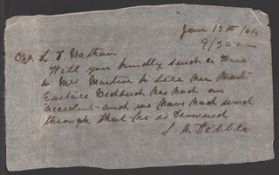 June 13th / 04
9/30 am
Mr. L. F. Nathan
Will you kindly send a wire
to Mrs Martin to tell her that
Eustace Bedford has had an
accident and we have had word
through that he is drowned
L. N. Dibble